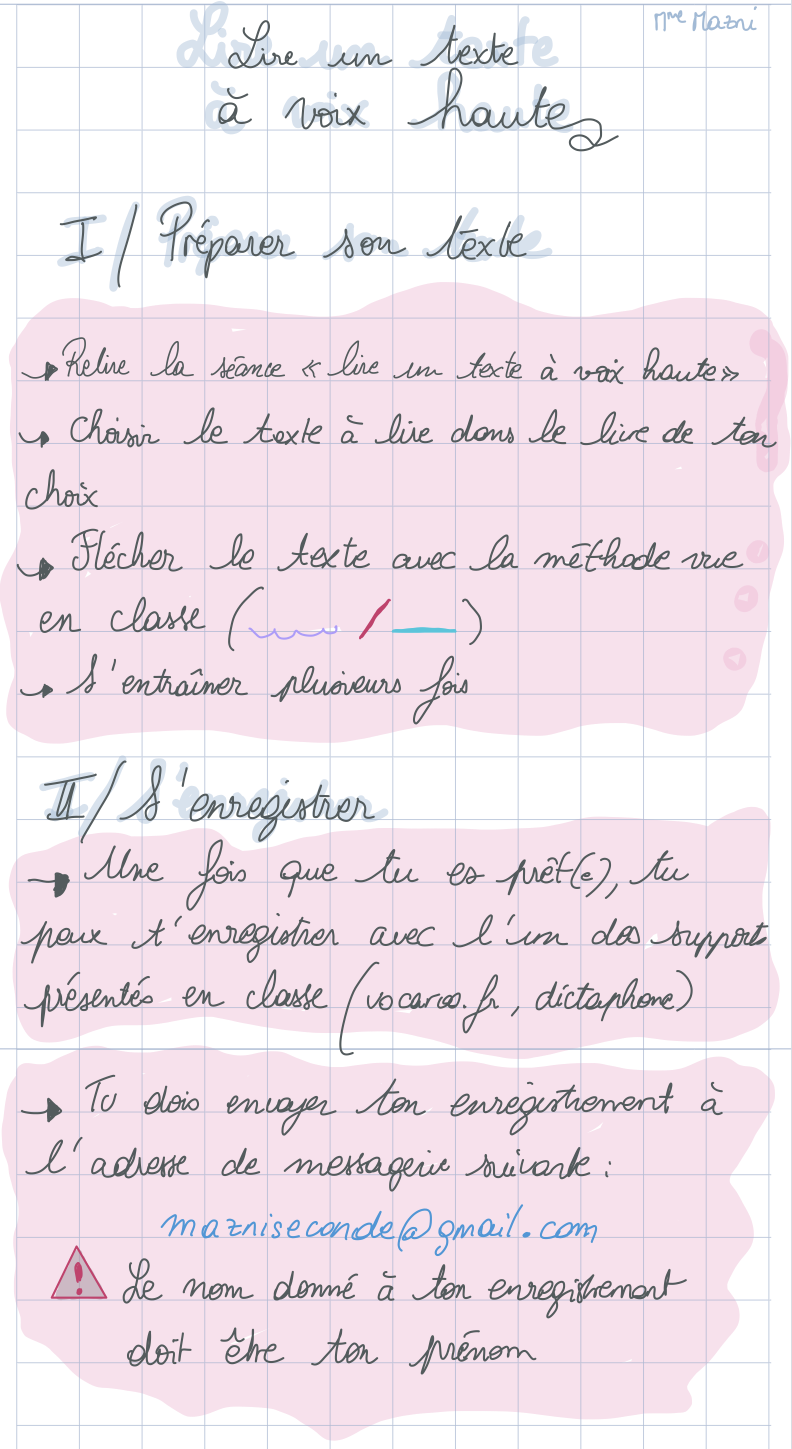 Mme Mazni
Lire un texte
à voix haute
I/ Préparer son texte
→ Relire la séance « lire un texte à voix haute»
→ Choisir le texte à lire dans le livre de ton
choix
→ Flécher le texte avec la méthode vue
en classe ( / )
→ S'entraîner plusieurs fois
II/ S'enregistrer
→ Une fois que tu es prêt(e), tu
peux t'enregistrer avec l'un des supports
présentés en classe (vocaroo.fr, dictaphone)
→ Tu dois envoyer ton enregistrement à
l'adresse de messagerie suivante :
mazniseconde@gmail.com
! Le nom donné à ton enregistrement
doit être ton prénom